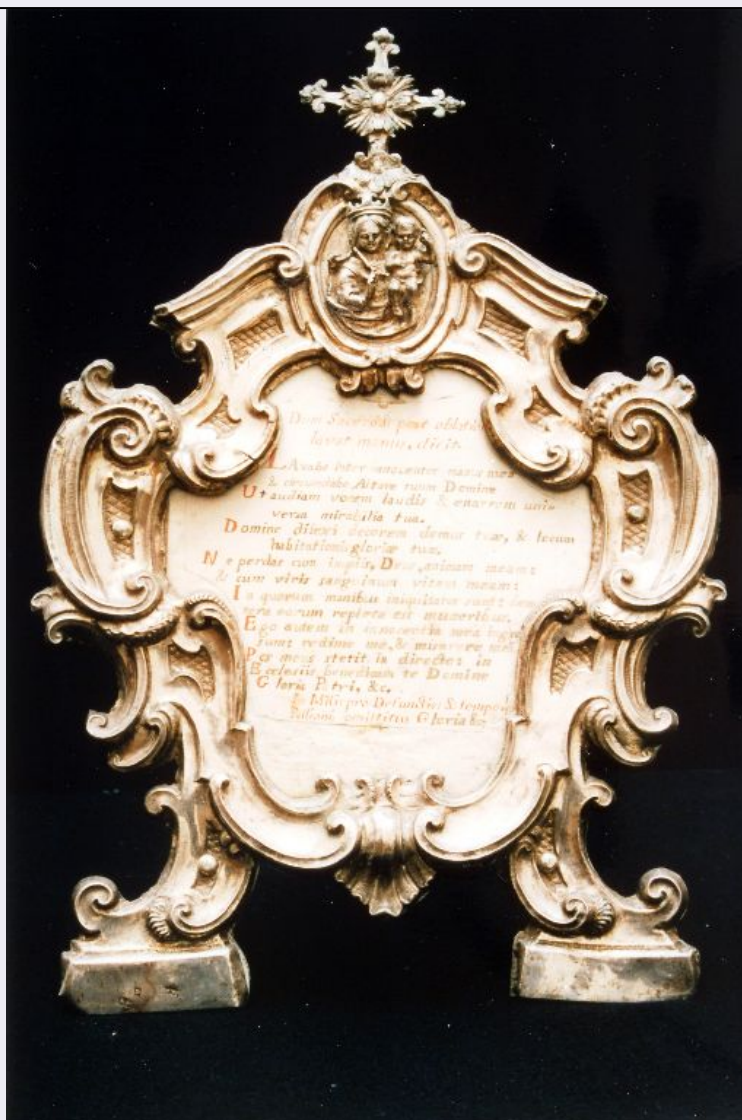 Dum Sacerdos post oblationem
lavat manus, dicit.
LAvabo inter innocentes manus meas
& circumdabo Altare tuum Domine
Ut audiam vocem laudis & enarrem uni-
versa mirabilia tua.
Domine dilexi decorem domus tuæ, & locum
habitationis gloriæ tuæ.
Ne perdas cum impiis, Deus, animam meam:
& cum viris sanguinum vitam meam:
In quorum manibus iniquitates sunt: dex-
tera eorum repleta est muneribus.
Ego autem in innocentia mea ingres
sum: redime me, & miserere mei
Pes meus stetit in directo: in
Ecclesiis benedicam te Domine
Gloria Patri, &c.
In Missis pro Defunctis & tempore
omittitur Gloria &c.